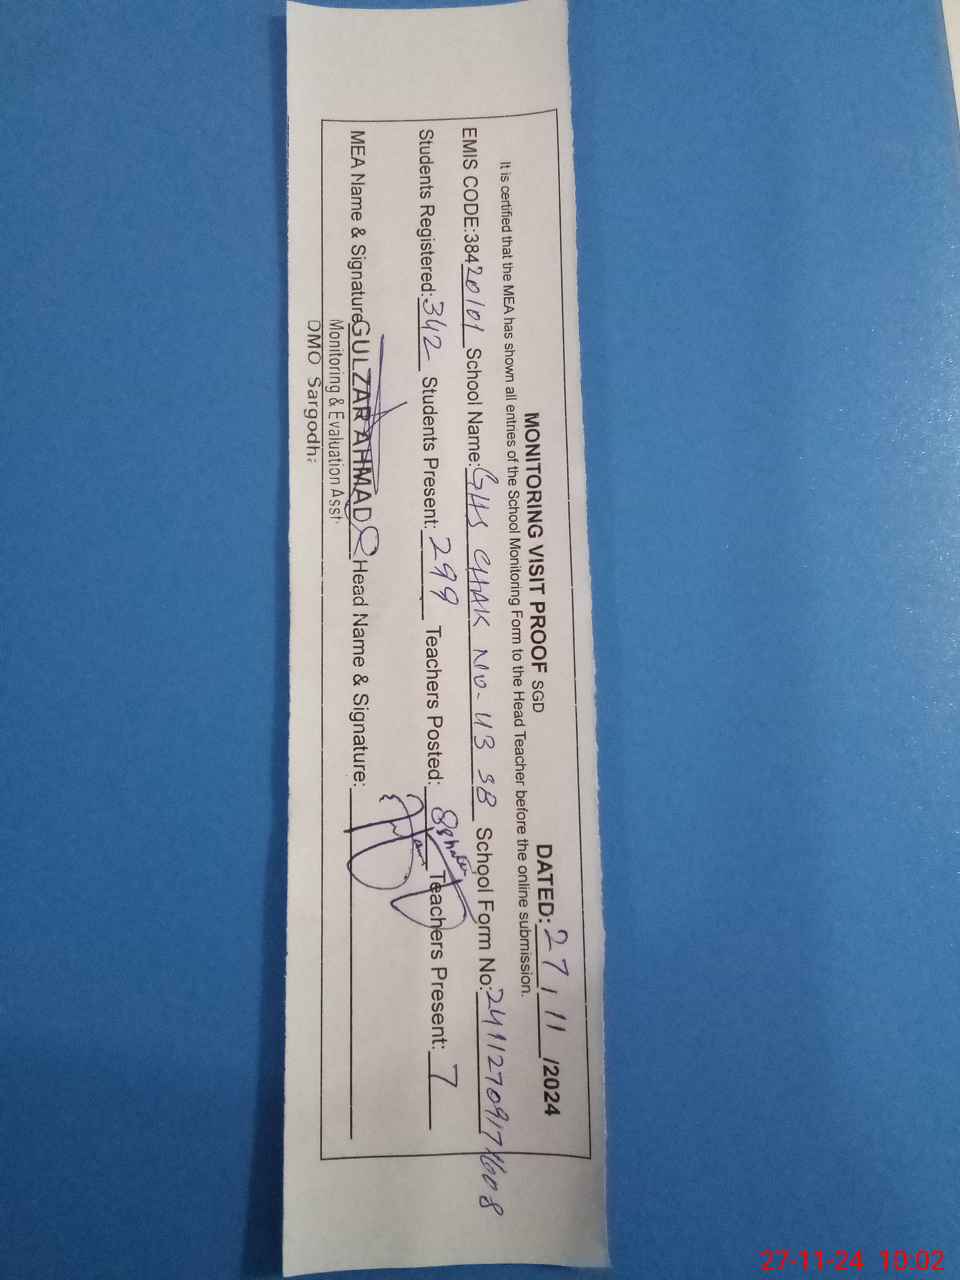 MONITORING VISIT PROOF SGD DATED: 27/11/2024
It is certified that the MEA has shown all entries of the School Monitoring Form to the Head Teacher before the online submission.
EMIS CODE:38420101 School Name: GHS CHAK NO-43 SB School Form No: 241127091
Students Registered: 342 Students Present: 299 Teachers Posted: 8 Teachers Present: 7
MEA Name & Signature GULZAR AHMAD Head Name & Signature:
Monitoring & Evaluation Asst
DMO Sargodh
27-11-24 10:02